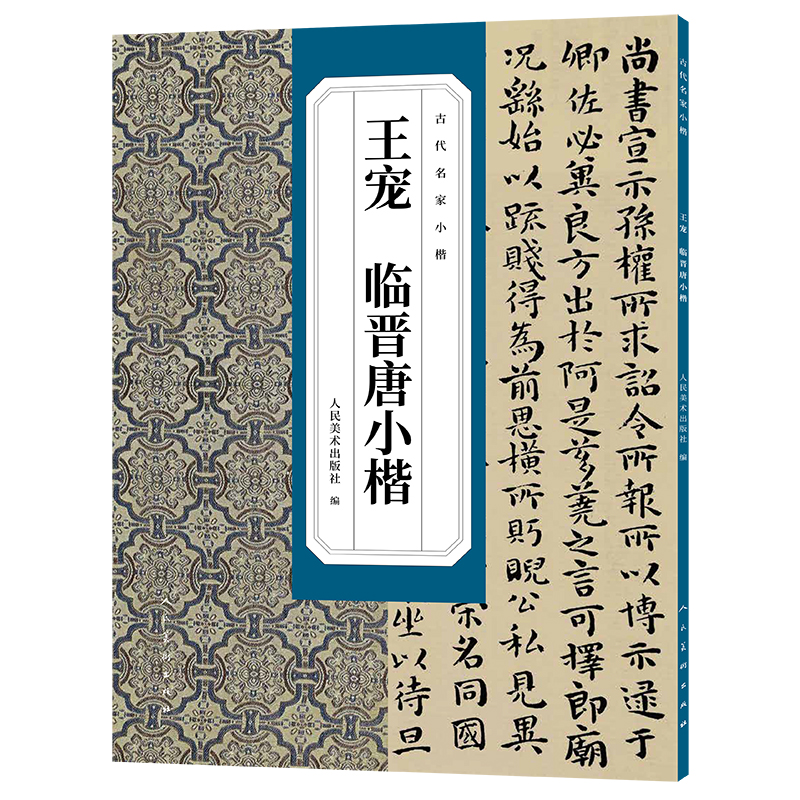 古代名家小楷
王宠 临晋唐小楷
人民美术出版社 编
尚書宣示孫權所求詔令所報所以博示逮于
卿佐必冀良方出於阿是芻蕘之言可擇郎廟
况繇始以疏賤得為前恩橫所眄睨公私見異
榮名同國
坐以待旦
古代名家小楷
王宠 临晋唐小楷
人民美术出版社 编
人民美術出版社